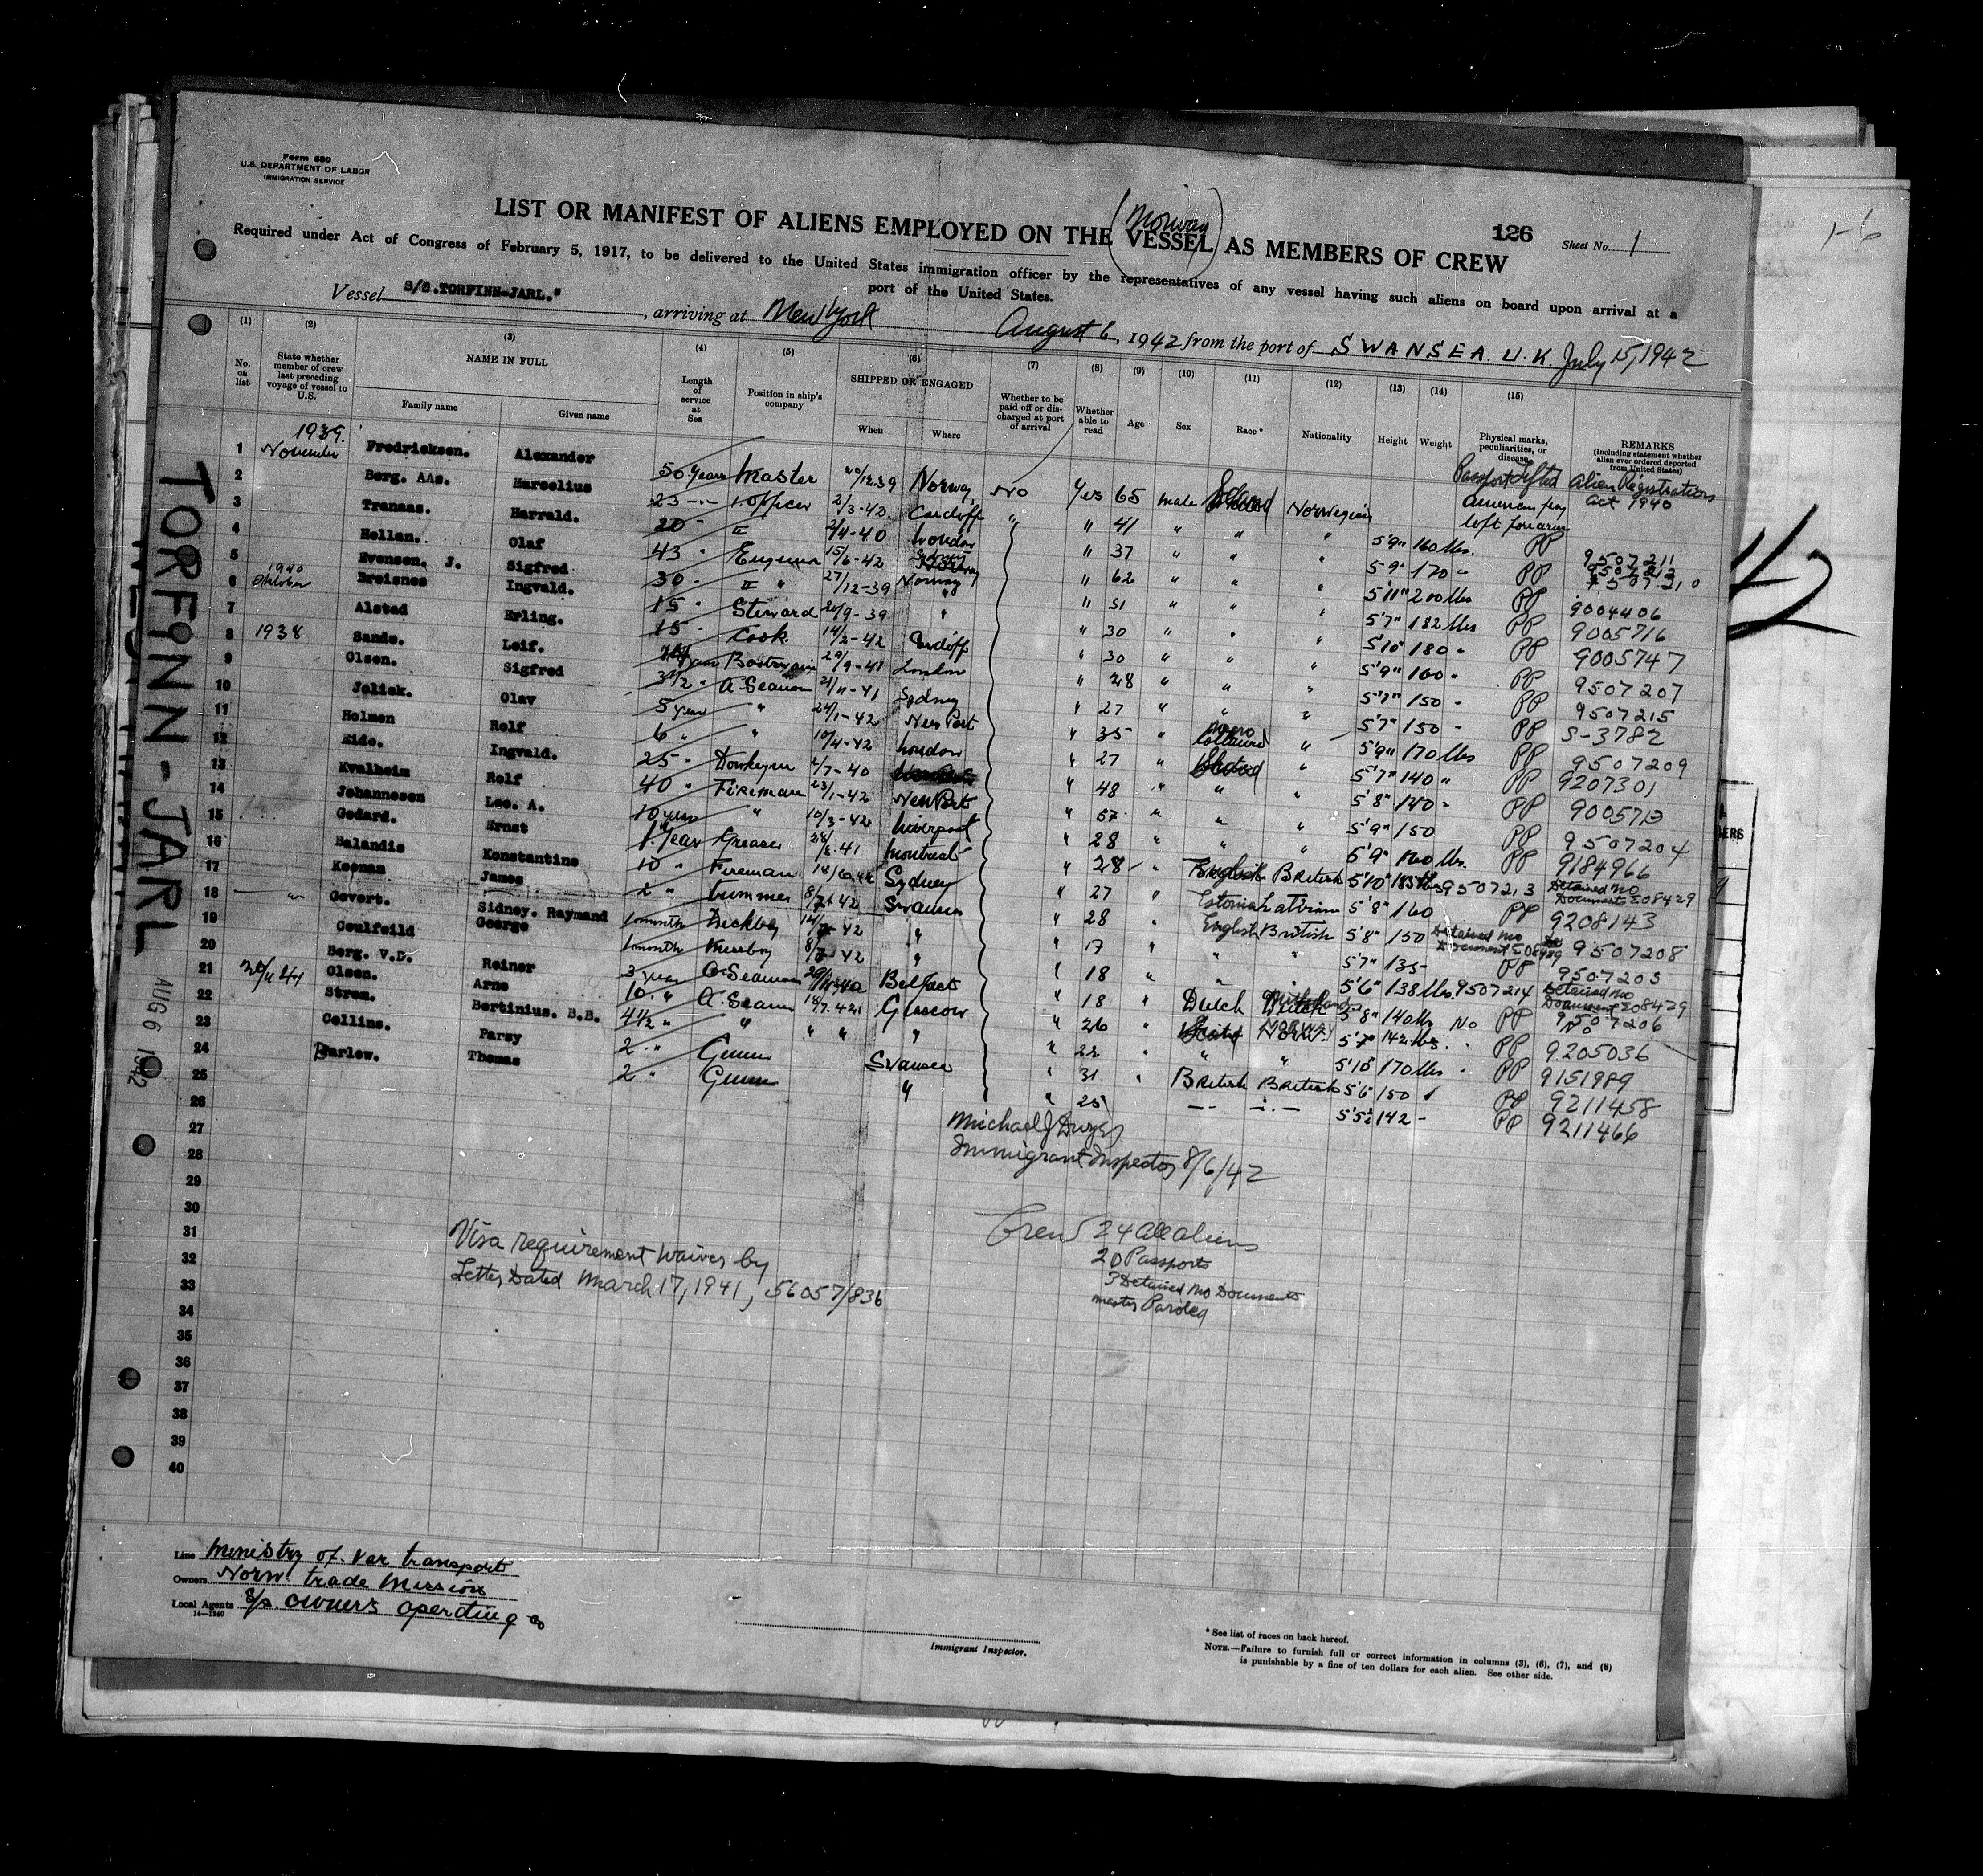 Form 680
U.S. DEPARTMENT OF LABOR
IMMIGRATION SERVICE
LIST OR MANIFEST OF ALIENS EMPLOYED ON THE VESSEL AS MEMBERS OF CREW
(Norway)
126
Sheet No. 1
1-6
Required under Act of Congress of February 5, 1917, to be delivered to the United States immigration officer by the representatives of any vessel having such aliens on board upon arrival at a
port of the United States.
Vessel S/S. TORFINN-JARL." , arriving at New York August 6, 1942 from the port of SWANSEA. U.K. July 15, 1942
(1) (2) (3) (4) (5) (6) (7) (8) (9) (10) (11) (12) (13) (14) (15)
No. on list
State whether member of crew last preceding voyage of vessel to U.S.
NAME IN FULL
Family name Given name
Length of service at Sea
Position in ship's company
SHIPPED OR ENGAGED
When Where
Whether to be paid off or discharged at port of arrival
Whether able to read
Age Sex Race* Nationality Height Weight
Physical marks, peculiarities, or disease
REMARKS (Including statement whether alien ever ordered deported from United States)
Passport Lifted Alien Registration Act 1940
1939.
1 November Fredricksen. Alexander 50 years Master Norway No Yes 65 male Norwegian
2 Berg. AAs. Marcelius 23 1. Officer 2/3-42 Cardiff " " 41 " " " 5'9" 160 lbs. PP 9507211
3 Tranaas. Harrald. 20 " II 2/4-40 London " 37 " " " 5'9" 170 " PP
4 Hellan. Olaf 43 " 15/6-42 " 62 " " " 5'11" 200 lbs PP 9004406
5 Evensen. J. Sigfred 30 " II " 27/12-39 Norway " 51 " " " 5'7" 182 lbs PP 9005716
1940
6 Oktober Breisnes Ingvald. 15 " Steward 20/9-39 " " 30 " " " 5'10" 180 " PP 9005747
7 Alstad Erling. 15 " Cook 14/2-42 Cardiff " 30 " " " 5'9" 160 " PP 9507207
8 1938 Sande. Leif. 29/9-41 London " 28 " " " 5'7" 150 " PP 9507215
9 Olsen. Sigfred 3 1/2 " A. Seaman 21/11-41 Sydney " 27 " " " 5'7" 150 " PP S-3782
10 Jolick. Olav 5 year " 24/1-42 New Port " 35 " " 5'9" 170 lbs PP 9507209
11 Holmen Rolf 6 " " 10/4-42 London " 27 " " 5'7" 140 " PP 9207301
12 Eide. Ingvald. 25 " Donkeyman 2/7-40 " 48 " " " 5'8" 140 " PP
13 Kvalheim Rolf 40 " Fireman 23/1-42 New Port " 57 " " " 5'9" 150 PP 9507204
14 Johannesen Leo. A. 10 year " 10/3-42 Liverpool " 28 " " " 5'9" 160 lbs. PP 9184966
15 Godard. Ernst 1 Year Greaser Montreal " 28 " English British 5'10" 9507213 Detained no Document
16 Balandis Konstantine 10 " Fireman Sydney " 27 " Estonish Latvian 5'8" 160 PP 9208143
17 Keenan James 2 " Trimmer Swansea " 28 " English British 5'8" 150 Detained no Document 9507208
18 Govert. Sidney. Raymand 1 month " 17 " " " 5'7" 135- PP
19 Caulfeild George 1 month Messboy " 18 " " " 5'6" 138 lbs. 9507214 Detained no Document
20 Berg. V.D. Reiner 3 year Seaman Belfast " 18 " Dutch 5'8" 140 lbs No PP 9507206
21 Olsen. Arne 10. " A. Seaman Glascow " 26 " 5'7" 142 lbs. PP 9205036
22 Strøm. Bertinius. B.B. 4 1/2 " " " " " " 22 " " " 170 lbs " PP 9151989
23 Collins. Parsy 2 " Swansea " 31 " British British 5'6" 150 PP 9211458
24 Barlow. Thomas 2 " " " 25 5'5½ 142 - PP 9211466
25
26
27
28
29
30
31
32
33
34
35
36
37
38
39
40
Immigrant Inspector 8/6/42
Crew 24 all aliens
20 Passports
3 Detained no Documents
master Paroled
Visa requirement waived by
Letter Dated March 17, 1941, 56057/836
TORFINN-JARL
AUG 6 1942
Line Ministry of war transport
Owners Norw. trade Mission
Local Agents S/S. owner's operating Co
14-1240
Immigrant Inspector.
* See list of races on back hereof.
NOTE.—Failure to furnish full or correct information in columns (3), (6), (7), and (8)
is punishable by a fine of ten dollars for each alien. See other side.